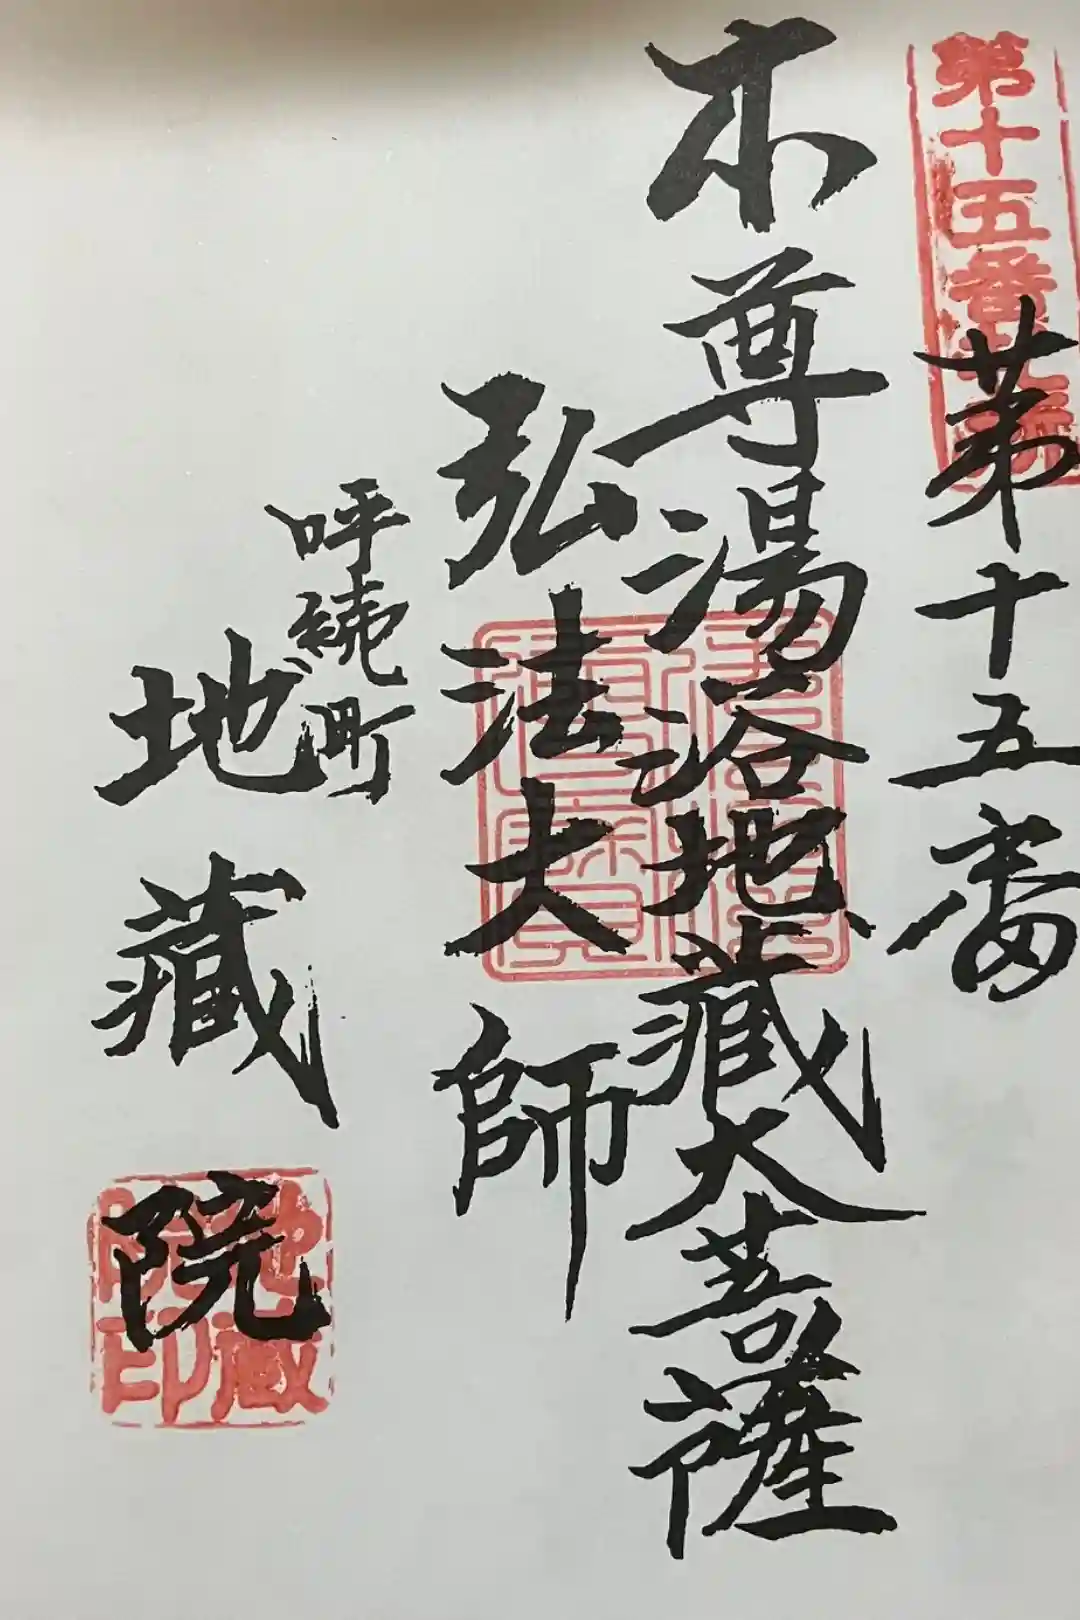 第十五番
第十五番
本尊湯浴地蔵大菩薩
弘法大師
呼続町
地蔵院
地蔵院印